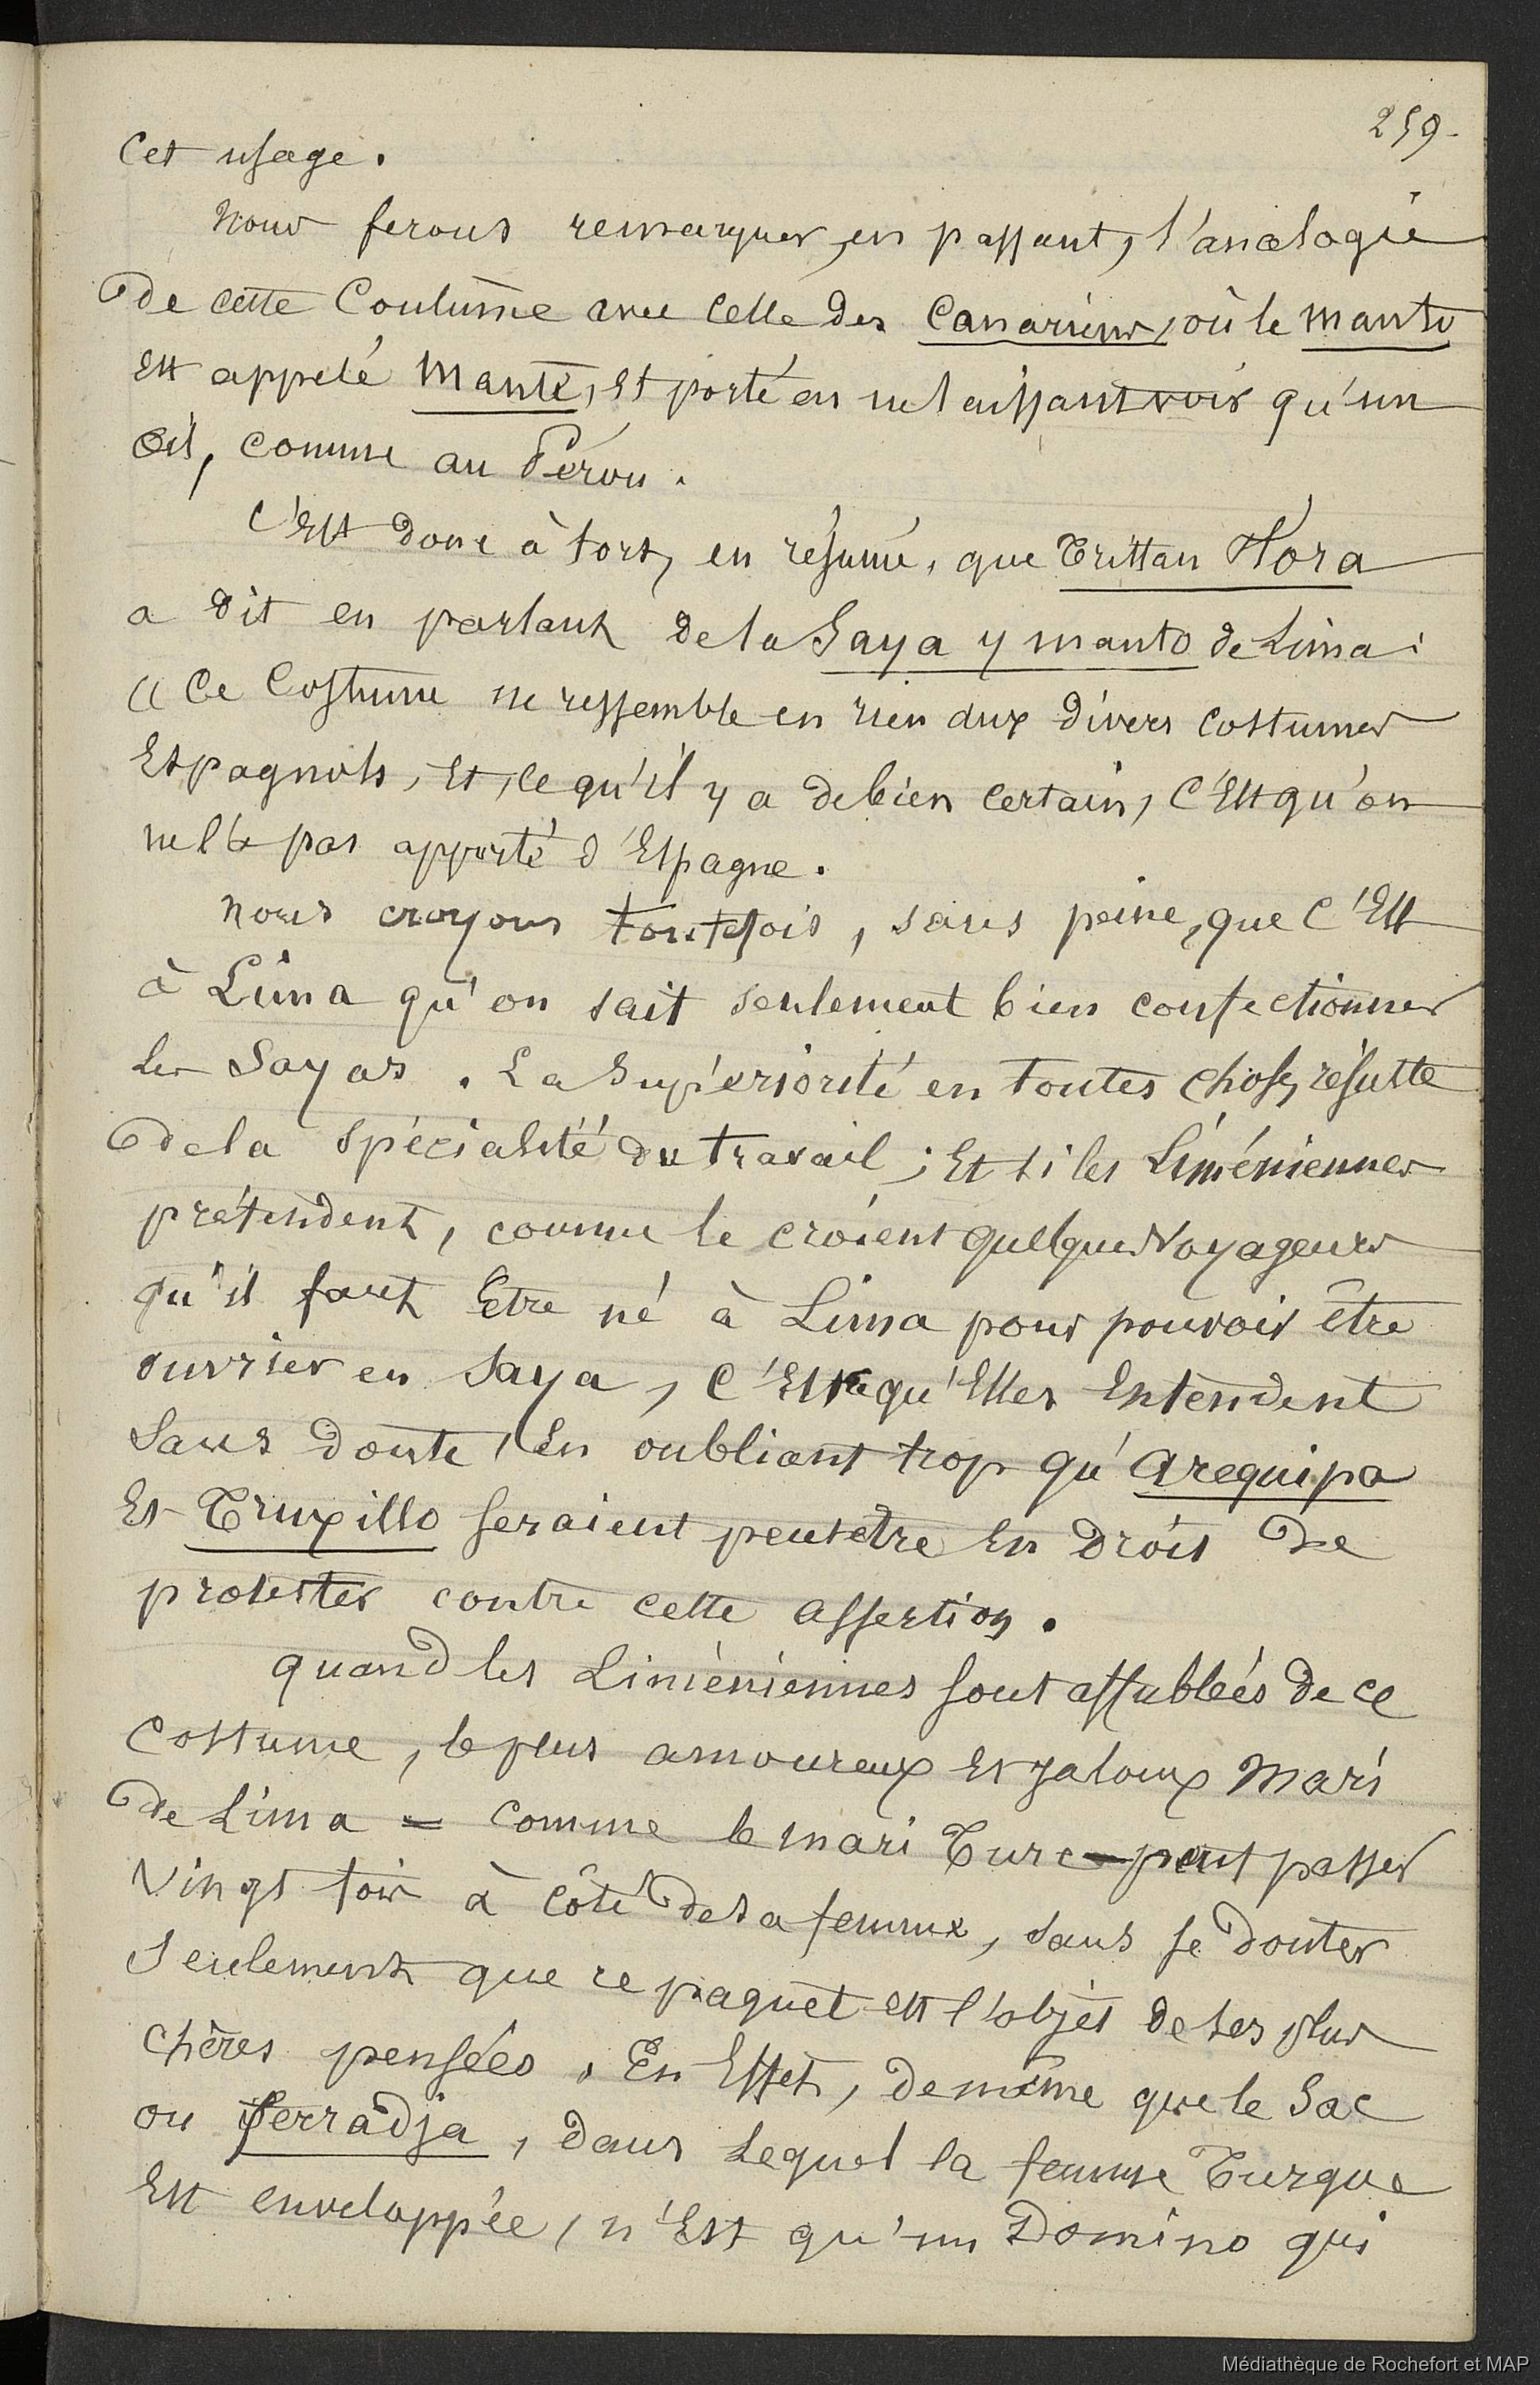 259.
Cet usage.
Nous ferons remarquer, en passant, l'analogie
de cette Coutume avec celle des Canariens, où le manto
Est appelé Mante, Et porté en ne laissant voir qu'un
œil, comme au Pérou.
C'Est donc à tort, en résumé, que Tristan Flora
a dit en parlant de la Saya y manto de Lima :
« Ce Costume ne ressemble en rien aux divers costumes
Espagnols, Et, ce qu'il y a de bien certain, C'Est qu'on
ne l'a pas apporté d'Espagne.
Nous croyons toutefois, sans peine, que C'Est
à Lima qu'on sait seulement bien confectionner
les Sayas. La Supériorité en toutes choses, résulte
de la spécialité du travail ; Et si les Liméniennes
prétendent, comme le croient quelques Voyageurs
qu'il faut Etre né à Lima pour pouvoir être
ouvrier en Saya, C'Est qu'Elles Entendent
Sans doute, En oubliant trop qu'Arequipa
Et Truxillo seraient peut etre En Droit de
protester contre cette assertion.
quand les Liméniennes sont affublées de ce
Costume, le plus amoureux Et jaloux Mari
de Lima = comme le mari Turc - peut passer
Vingt fois à côté de sa femme, sans se douter
Seulement que ce paquet est l'objet de ses plus
chères pensées. En Effet, de même que le Sac
ou ferradja, dans Lequel la femme Turque
Est enveloppée, n'Est qu'un Domino qui
Médiathèque de Rochefort et MAP